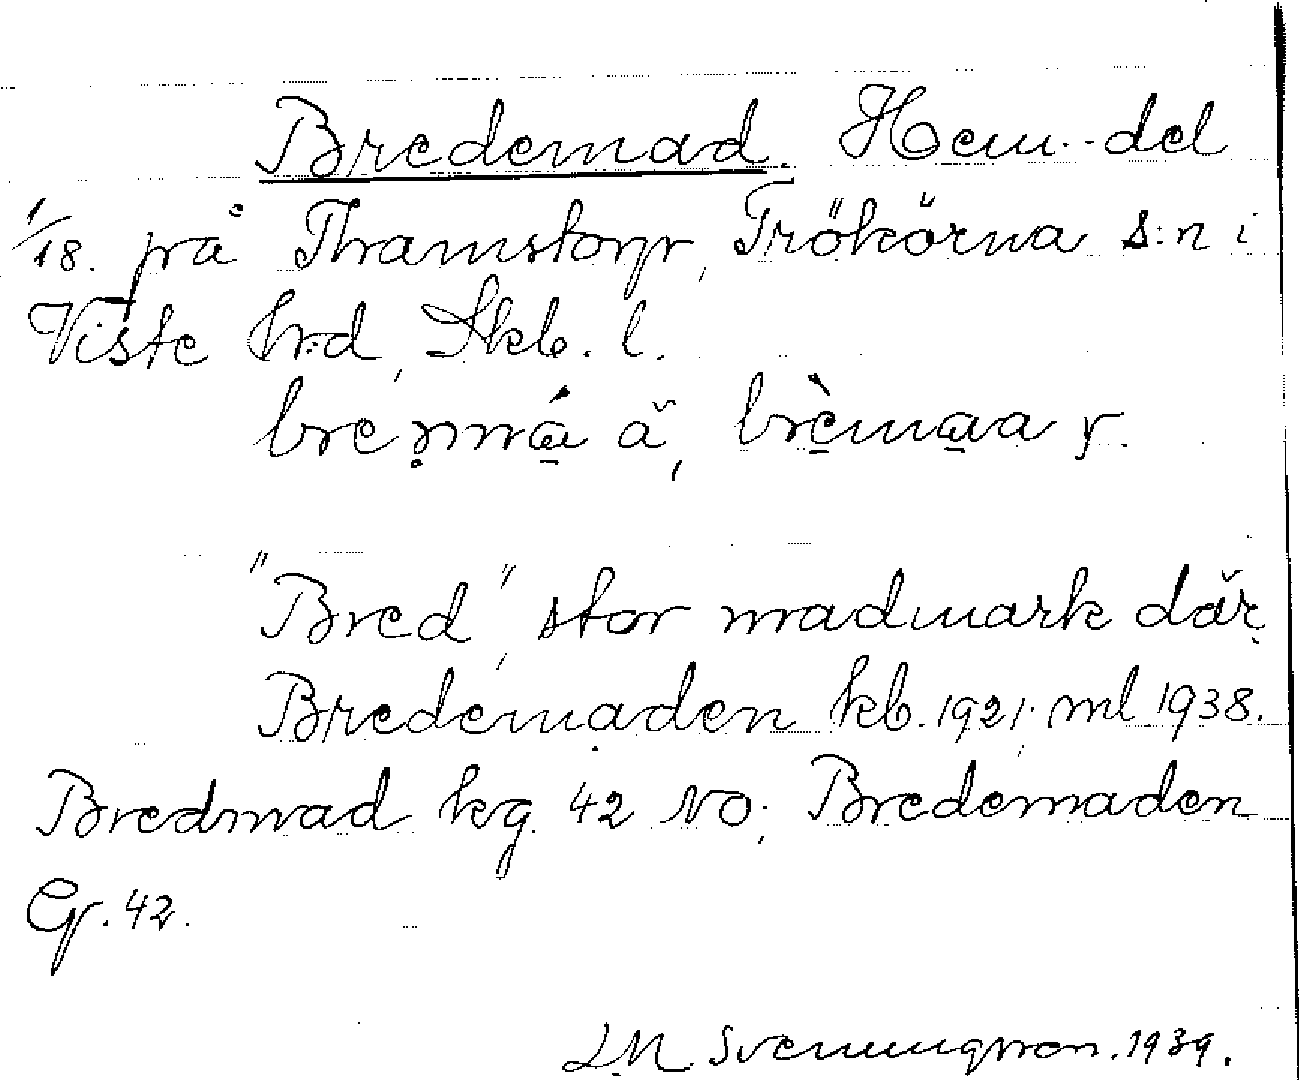 Bredemad. Hem.-del
1/18. på Thamstorp, Trökörna s:n i
Viste h:d, Skb. l.
bre̥nmá ä̆, brèmaa y.
"Bred", stor madmark där.
Bredemaden kb. 1921; ml 1938.
Bredmad kg. 42 NO; Bredemaden
G. 42.
LM Svenungsson. 1939.